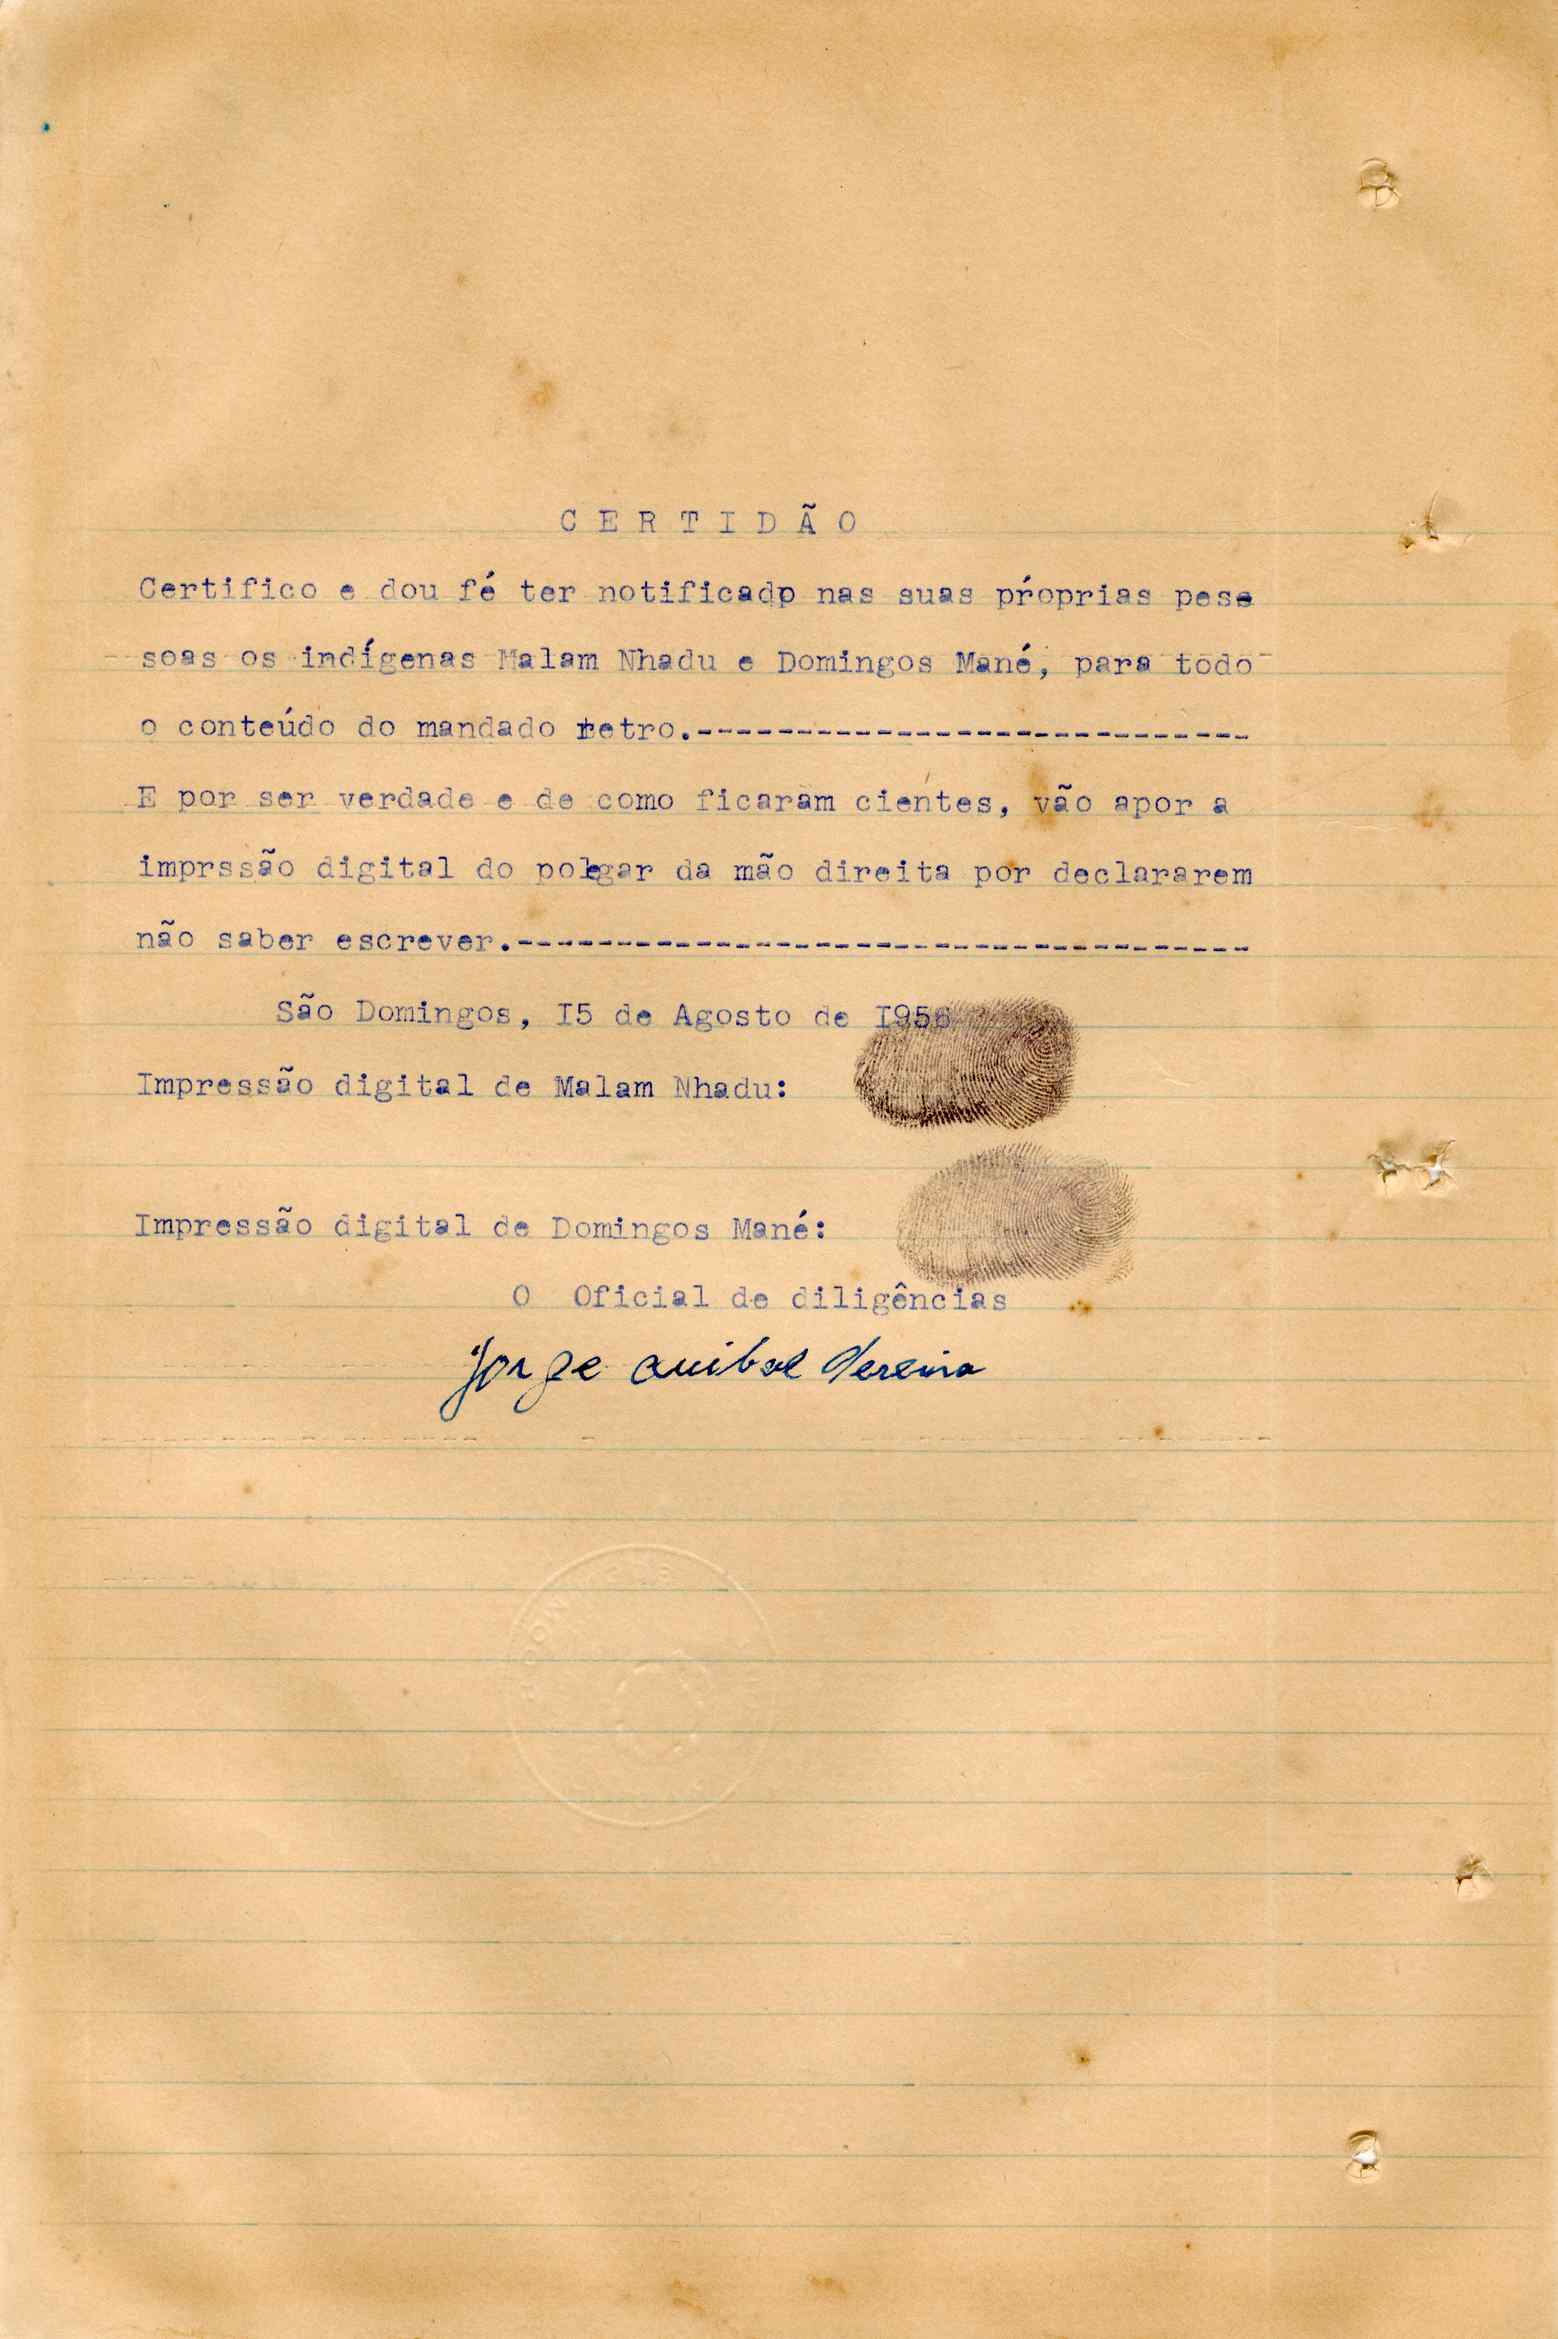 CERTIDÃO
Certifico e dou fé ter notificado nas suas próprias pese
soas os indígenas Malam Nhadu e Domingos Mané, para todo
o conteúdo do mandado retro.----------------------------
E por ser verdade e de como ficaram cientes, vão apor a
imprssão digital do polegar da mão direita por declararem
não saber escrever.-------------------------------------
São Domingos, I5 de Agosto de I956
Impressão digital de Malam Nhadu:
Impressão digital de Domingos Mané:
O Oficial de diligências
Jorge Anibal Pereira